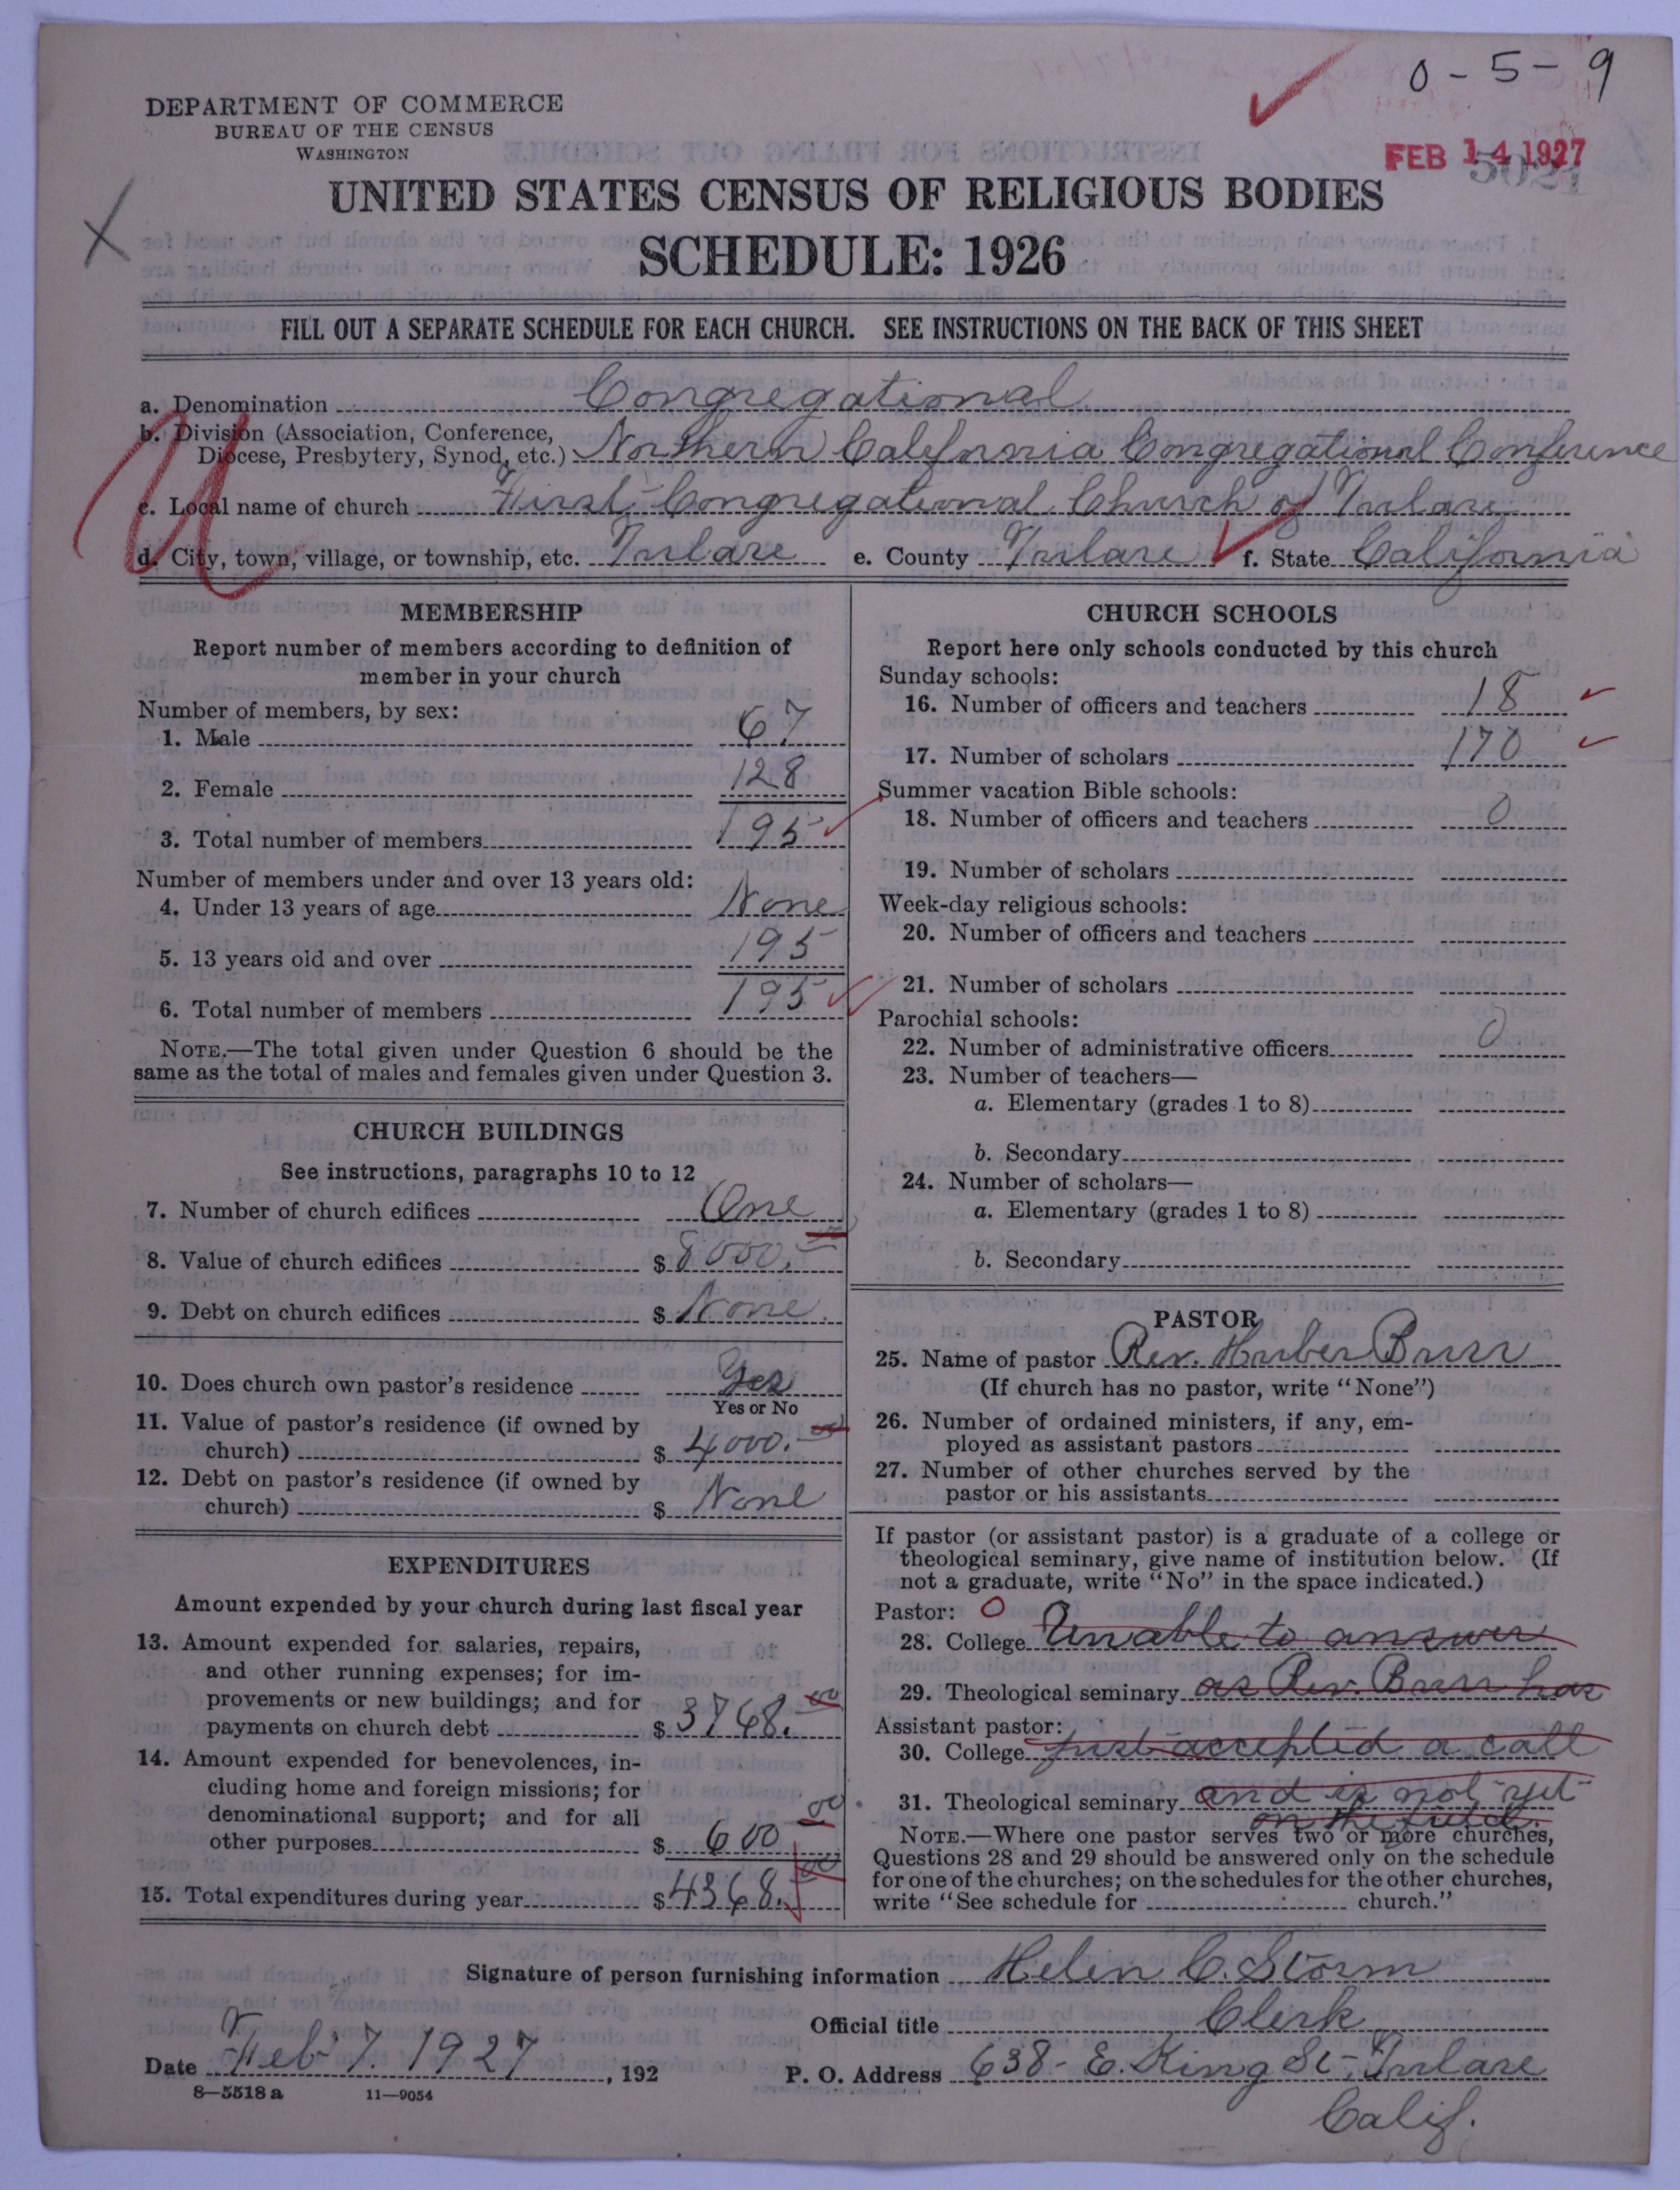 0-5-9
DEPARTMENT OF COMMERCE
BUREAU OF THE CENSUS
WASHINGTON
FEB 14 1927
UNITED STATES CENSUS OF RELIGIOUS BODIES
SCHEDULE: 1926
FILL OUT A SEPARATE SCHEDULE FOR EACH CHURCH. SEE INSTRUCTIONS ON THE BACK OF THIS SHEET
a. Denomination Congregational
b. Division (Association, Conference,
Diocese, Presbytery, Synod, etc.) Northern California Congregational Conference
c. Local name of church First Congregational Church of Tulare
d. City, town, village, or township, etc. Tulare e. County Tulare f. State California
MEMBERSHIP
Report number of members according to definition of
member in your church
Number of members, by sex:
1. Male 67
2. Female 128
3. Total number of members 195
Number of members under and over 13 years old:
4. Under 13 years of age None
5. 13 years old and over 195
6. Total number of members 195
NOTE.—The total given under Question 6 should be the
same as the total of males and females given under Question 3.
CHURCH BUILDINGS
See instructions, paragraphs 10 to 12
7. Number of church edifices One
8. Value of church edifices $ 8000.00
9. Debt on church edifices $ None
10. Does church own pastor's residence Yes
Yes or No
11. Value of pastor's residence (if owned by
church) $ 4000.00
12. Debt on pastor's residence (if owned by
church) $ None
EXPENDITURES
Amount expended by your church during last fiscal year
13. Amount expended for salaries, repairs,
and other running expenses; for im-
provements or new buildings; and for
payments on church debt $ 3768.00
14. Amount expended for benevolences, in-
cluding home and foreign missions; for
denominational support; and for all
other purposes $ 600 00
15. Total expenditures during year $ 4368.00
CHURCH SCHOOLS
Report here only schools conducted by this church
Sunday schools:
16. Number of officers and teachers 18
17. Number of scholars 170
Summer vacation Bible schools:
18. Number of officers and teachers 0
19. Number of scholars
Week-day religious schools:
20. Number of officers and teachers
21. Number of scholars
Parochial schools:
22. Number of administrative officers 0
23. Number of teachers—
a. Elementary (grades 1 to 8)
b. Secondary
24. Number of scholars—
a. Elementary (grades 1 to 8)
b. Secondary
PASTOR
25. Name of pastor Rev. Burr
(If church has no pastor, write "None")
26. Number of ordained ministers, if any, em-
ployed as assistant pastors
27. Number of other churches served by the
pastor or his assistants
If pastor (or assistant pastor) is a graduate of a college or
theological seminary, give name of institution below. (If
not a graduate, write "No" in the space indicated.)
Pastor: O
28. College Unable to answer
29. Theological seminary as Rev. Burr has
Assistant pastor:
30. College just accepted a call
31. Theological seminary and is not yet
on the field.
NOTE.—Where one pastor serves two or more churches,
Questions 28 and 29 should be answered only on the schedule
for one of the churches; on the schedules for the other churches,
write "See schedule for church."
Signature of person furnishing information Helen C. Storm
Official title Clerk
Date Feb 7. 1927, 192
P. O. Address 638- E. King St- Tulare
Calif.
8—5518 a 11—9054